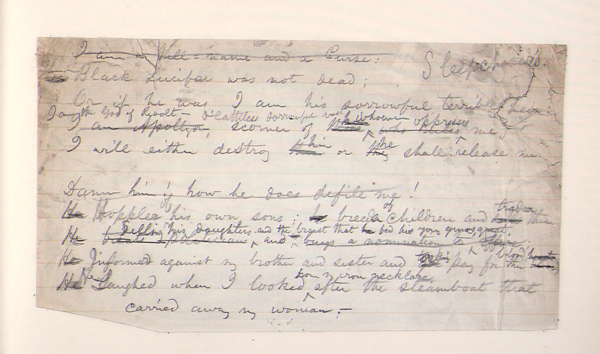 I am a Hell-name and a Curse:
Sleepchasers.
Black Lucifer was not dead;
Or if he was I am his sorrowful terrible heir:
I am the God of Revolt — deathless sorrowful
whoever oppresses
I am Apollyon scorner of who me,
I will either destroy him or he shall release me
Damn him! how he does defile me!
of
Hoppler his own sons; breeder children and trader
Selling his daughters and the breast that fed his young
buys a nomination to
Informed against my brother and sister and pay for their blood hearts
from my iron necklace
He laughed when I looked after the steamboat that
carried away my woman.—